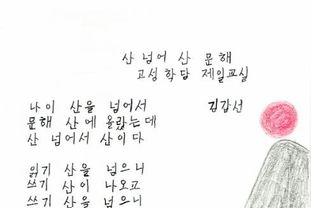 산 넘어 산 문해
고성학당 제일교실
김갑선
나이 산을 넘어서
문해 산에 올랐는데
산 넘어서 산이다
읽기 산을 넘으니
쓰기 산이 나오고
쓰기 산을 넘으니